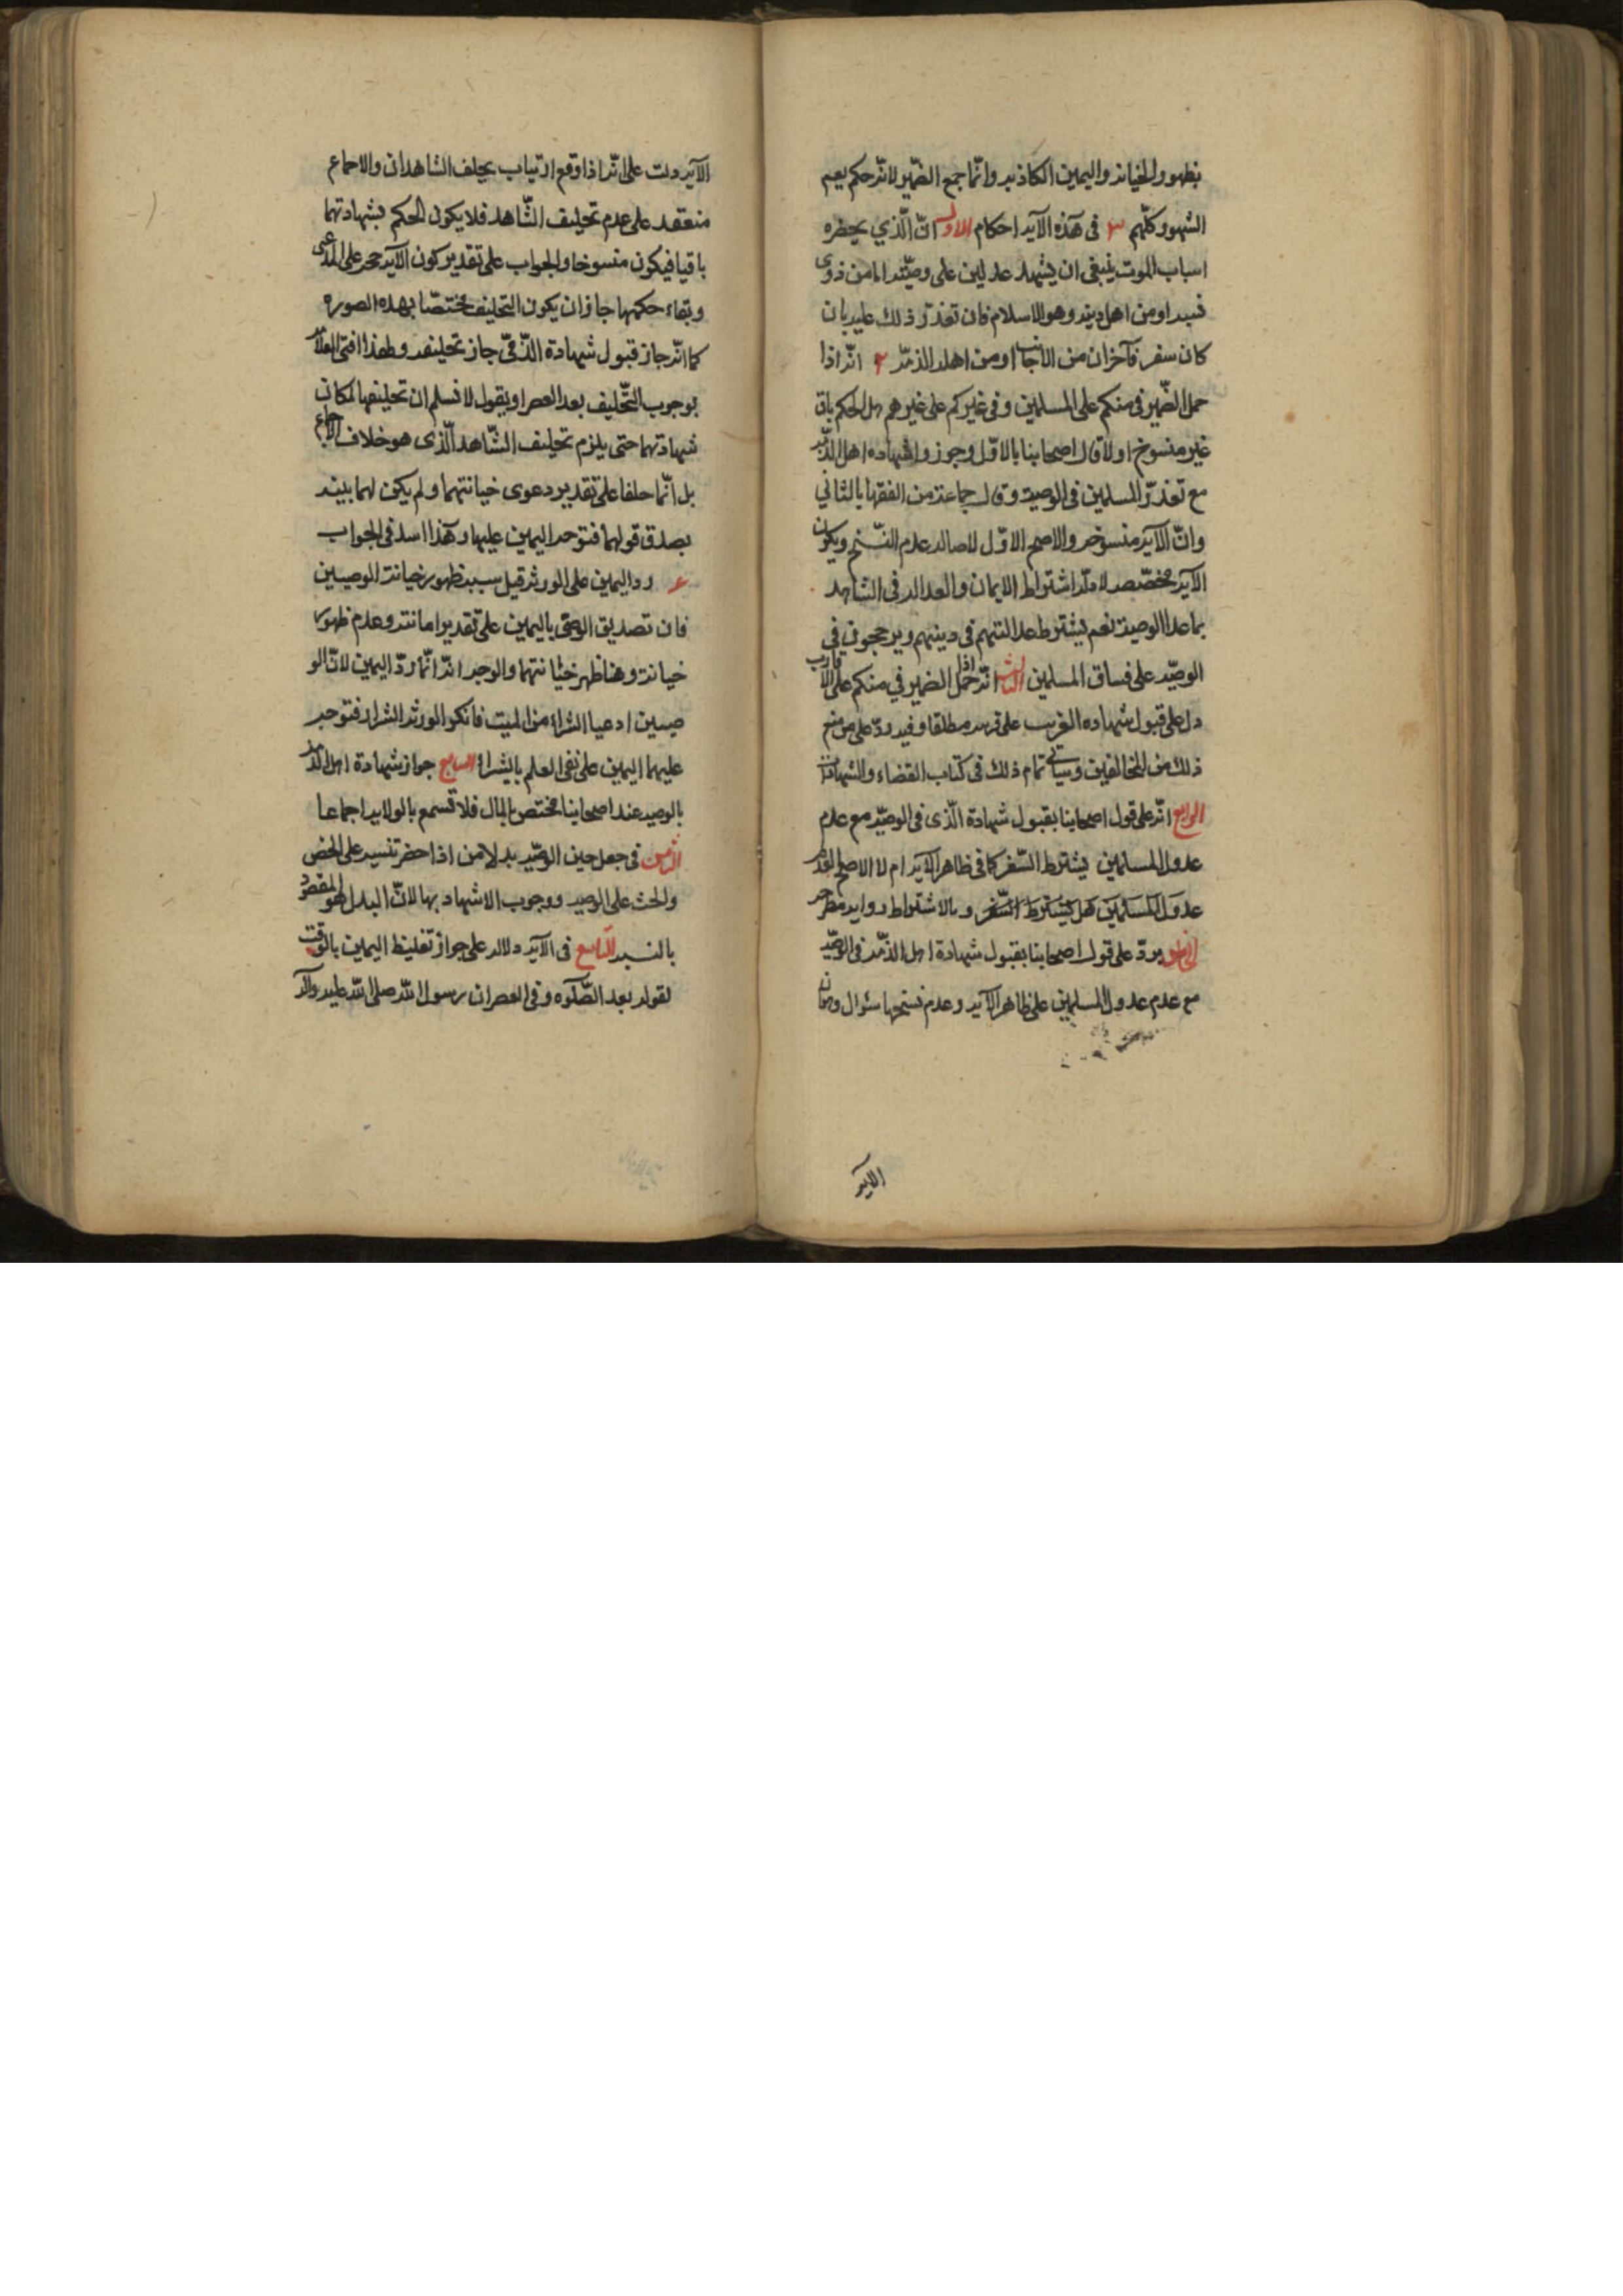 بظهور الخيانة واليمين الكاذبة وانّما جمع الضمير لانّه حكم يعم
الشهود كلّهم ٣ فى هذه الآية احكام الاول انّ الّذي يحضره
اسباب الموت ينبغى ان يشهد عدلين على وصيّته امّا من ذوى
نسبه او من اهل دينه وهو الاسلام فان تعذّر ذلك عليه بان
كان سفر فآخران من الاجانب او من اهل الذمّة ٢ انّه اذا
حمل الضّمير فى منكم على المسلمين وفى غيركم على غيرهم هل الحكم باق
غير منسوخ او لا قال اصحابنا بالاوّل وجوزوا شهاده اهل الذّمة
مع تعذّر المسلمين فى الوصية وقال جماعة من الفقها بالثاني
وانّ الآية منسوخه والاصح الاوّل لاصالة عدم النّسخ ويكون
الآية مخصّصه لادلّة اشتراط الايمان والعدالة فى الشاهد
بما عدا الوصية نعم يشترط عدالتهم فى دينهم ويرجحون في
الوصيّة على فساق المسلمين الثالث انّه اذا حمل الضمير في منكم على الاقارب
دل على قبول شهاده القريب على قريبه مطلقا وفيه ردّ على من منع
ذلك من المخالفين وسياتى تمام ذلك فى كتاب القضاء والشهادات
الرابع انّه على قول اصحابنا بقبول شهادة الّذى فى الوصيّة مع عدم
عدول المسلمين يشترط السّفر كما فى ظاهر الآية ام لا الاصح
عدول المسلمين هل يشترط السّفر وبالاشتراط رواية مطرحه
الخامس يردّ على قول اصحابنا بقبول شهادة اهل الذمّة فى الوصيّة
مع عدم عدول المسلمين على ظاهر الآية وعدم نسخها سئوال وهو ان
الآية
الآية دلت على انّه اذا وقع ارتياب يحلف الشاهدان والاجماع
منعقد على عدم تحليف الشّاهد فلا يكون الحكم بشهادتهما
باقيا فيكون منسوخا والجواب على تقدير كون الآية حجة على المدّعى
وبقاء حكمها جاز ان يكون التحليف مختصّا بهذه الصوره
كما انّه جاز قبول شهادة الذّمّى جاز تحليفه ولهذا افتى العلّامة
بوجوب التّحليف بعد العصر او يقول لا نسلم ان تحليفها لمكان
شهادتهما حتى يلزم تحليف الشّاهد الّذى هو خلاف الاجماع
بل انّما حلفا على تقدير دعوى خيانتهما ولم يكن لهما بينة
بصدق قولهما فتوجه اليمين عليها وهذا اسد فى الجواب
ع رد اليمين على الورثة قيل سببه ظهور خيانة الوصيين
فان تصديق الوصى باليمين على تقدير امانته وعدم ظهور
خيانة وهنا ظهر خيانتهما والوجه انّه انّما ردّ اليمين لانّ الو
صيين ادعيا الشراء من الميت فانكر الورثة الشراء فتوجه
عليهما اليمين على نفى العلم بالشراء السابع جواز شهادة اهل الذمّة
بالوصية عند اصحابنا مختص بالمال فلا تسمع بالولاية اجماعا
الثامن فى جعل حين الوصيّة بدلا من اذا حضر تنبيه على الحض
والحث على الوصية ووجوب الاشهاد بها لانّ البدل هو المقصود
بالنسبة التاسع فى الآية دلالة على جواز تغليظ اليمين بالوقت
لقوله بعد الصّلوه وفى العصر ان رسول اللّه صلى اللّه عليه وآله